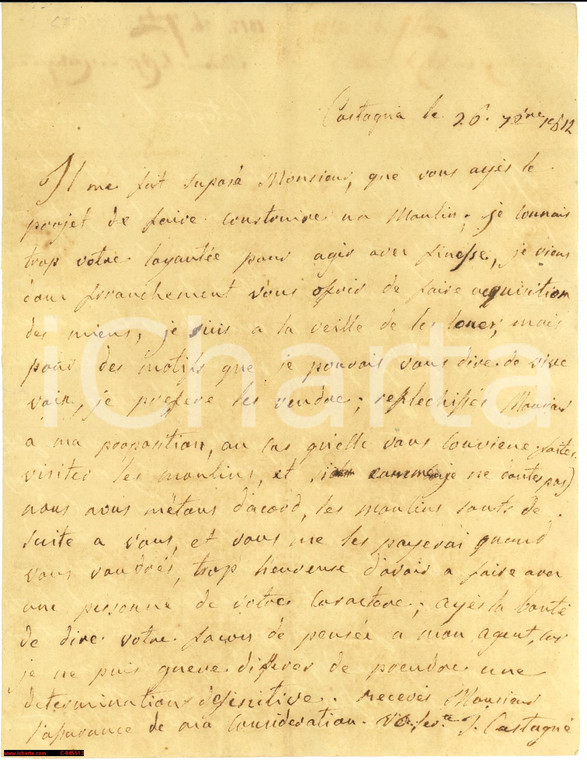 Castagnia le 26. 7bre 1812
Il me fait suposé Monsieur, que vous ayés le
projet de faire construire un Moulin, je connais
trop votre loyautée pour agir avec finesse, je viens
donc franchement vous ofrir de faire acquisition
des miens, je suis a la veille de les louer, mais
pour des motifs que je pouvais vous dire de vive
voix, je prefere les vendre; refléchissés Monsieur
a ma proposition, au cas qu'elle vous conviene, faites
visiter les moulins, et comme je ne doute pas)
nous nous métons d'acord, les moulins sont de
suite a vous, et vous me les payerai quand
vous voudrés, trop heureuse d'avoir a faire avec
une personne de votre caractere; ayés la bonté
de dire votre façon de pensée a mon agent, car
je ne puis guere differer de prendre une
determination définitive. recevés Monsieur
l'assurance de ma consideration. J. Castagné
iCharta
www.icharta.com